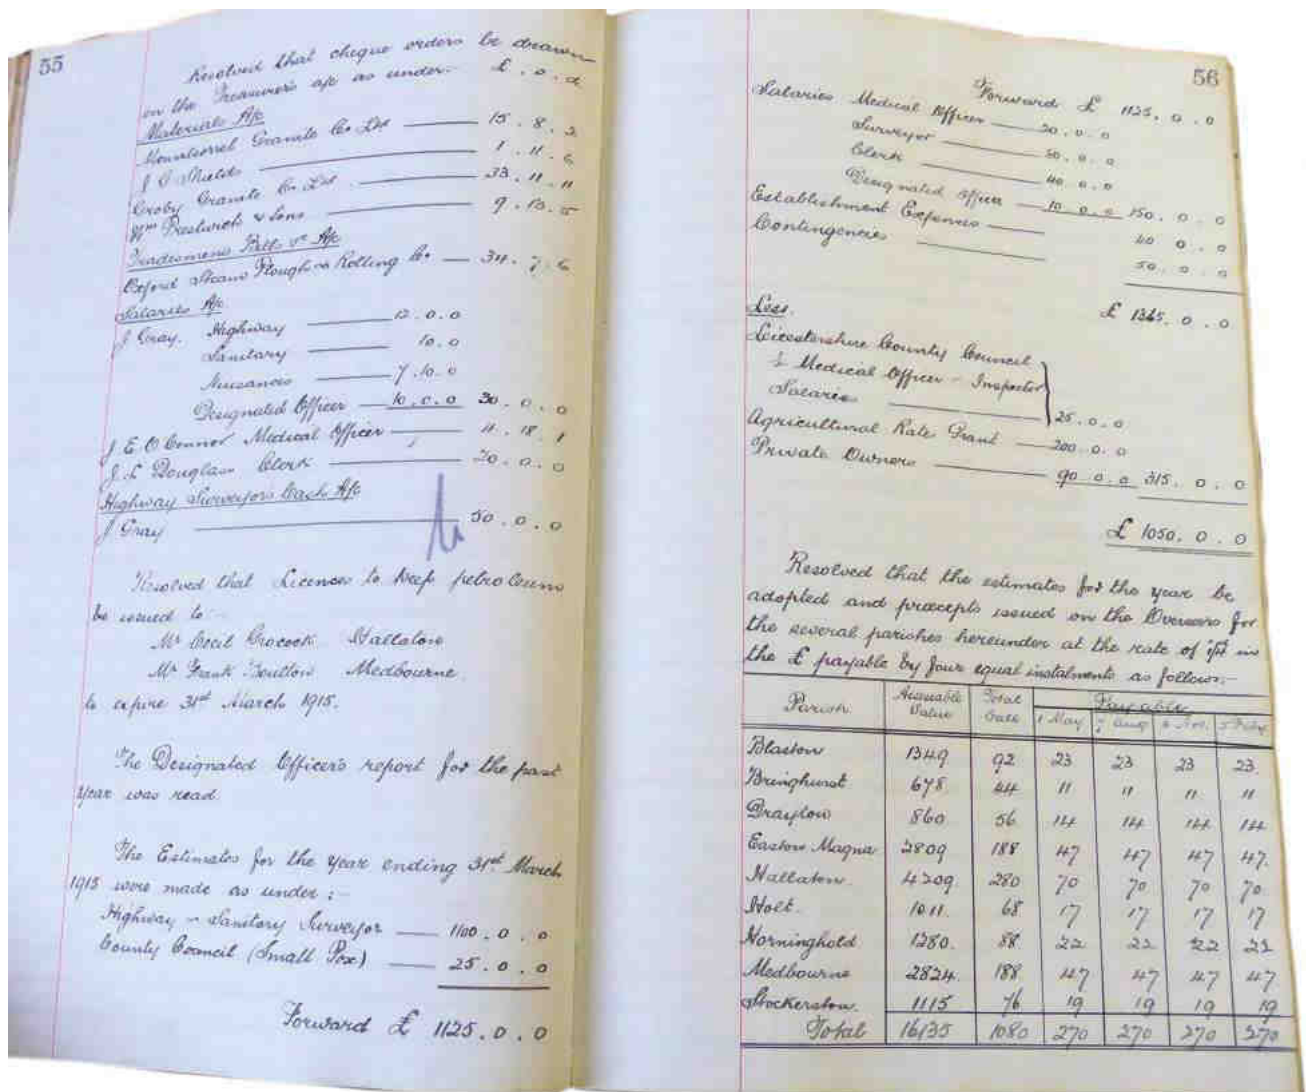 55
Resolved that cheque orders be drawn
on the Treasurer's a/c as under:- £ . s . d
Materials A/c
Mountsorrel Granite Co Ltd 15 . 8 . 2
J G Shields 1 . 11 . 6
Groby Granite Co Ltd 33 . 11 . 11
Wm Bastwick & Sons 9 . 10 . 5
Tradesmens Bills &c A/c
Oxford Steam Plough & Rolling Co 34 . 7 . 6
Salaries A/c
J Gray. Highway 12 . 0 . 0
Sanitary 10 . 0
Nuisances 7 . 10 . 0
Designated Officer 10 . 0 . 0 30 . 0 . 0
J. E. O'Connor Medical Officer 11 . 18 . 1
J. L Douglass Clerk 20 . 0 . 0
Highway Surveyors Cash A/c
J Gray 50 . 0 . 0
Resolved that Licences to keep petroleum
be issued to :-
Mr Cecil Grocock Hallaton
Mr Frank Boulton Medbourne.
to expire 31st March 1915.
The Designated Officer's report for the past
Year was read.
The Estimates for the year ending 31st March
1915 were made as under :-
Highway & Sanitary Surveyor 1100 . 0 . 0
County Council (Small Pox) 25 . 0 . 0
Forward £ 1125 . 0 . 0
56
Forward £ 1125 . 0 . 0
Salaries Medical Officer 50 . 0 . 0
Surveyor 50 . 0 . 0
Clerk 40 . 0 . 0
Designated Officer 10 . 0 . 0 150 . 0 . 0
Establishment Expenses 40 0 . 0
Contingencies 50 . 0 . 0
£ 1365 . 0 . 0
Less.
Leicestershire County Council
½ Medical Officer & Inspector
Salaries 25 . 0 . 0
Agricultural Rate Grant 200 . 0 . 0
Private Owners 90 0 . 0 315 . 0 . 0
£ 1050 . 0 . 0
Resolved that the estimates for the year be
adopted and precepts issued on the Overseers for
the several parishes hereunder at the rate of in
the £ payable by four equal instalments as follows:-
Parish Assessable Value Total Call Payable
1 May 7 Aug 6 Nov. 5 Feby
Blaston 1349 92 23 23 23 23
Bringhurst 678 44 11 11 11 11
Drayton 860 56 14 14 14 14
Easton Magna 2809 188 47 47 47 47.
Hallaton. 4209 280 70 70 70 70
Holt. 1011. 68 17 17 17 17
Horninghold 1280. 88. 22 22 22 22
Medbourne 2824. 188 47 47 47 47
Stockerston. 1115 76 19 19 19 19
Total 16135 1080 270 270 270 270